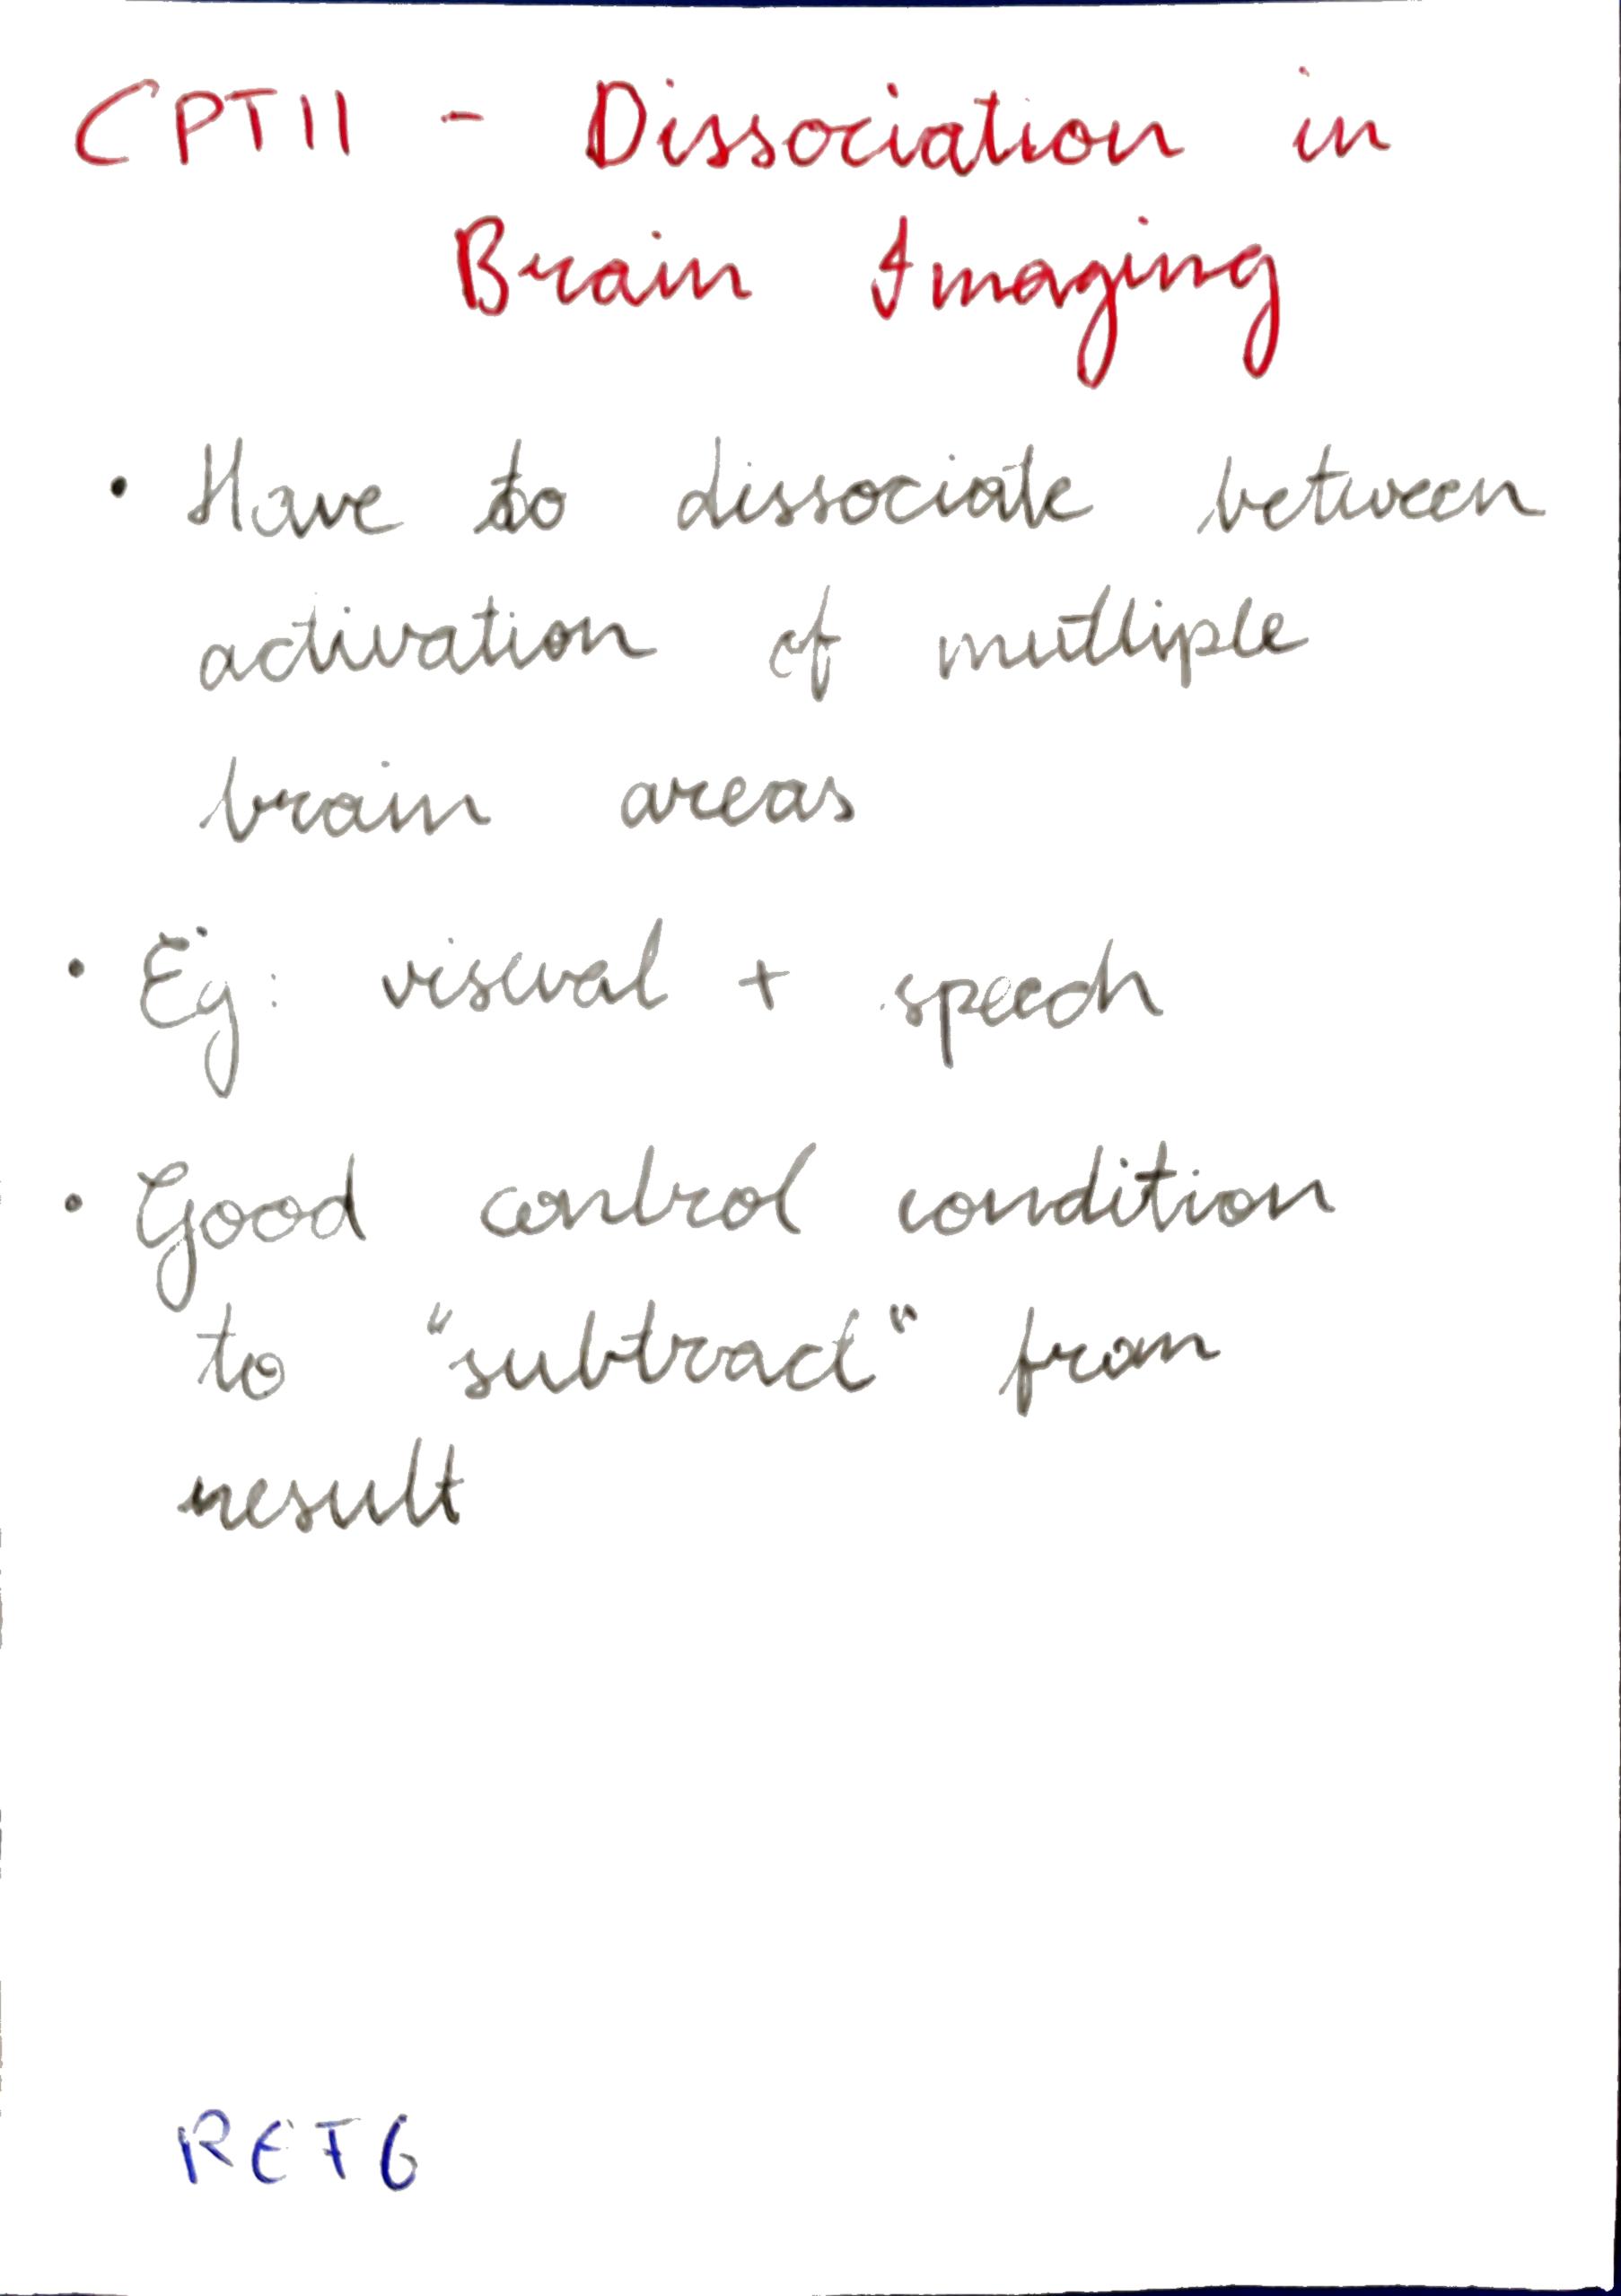 CPT11 - Dissociation in
Brain Imaging
• Have to dissociate between
activation of multiple
brain areas
• Eg: visual + speech
• Good control condition
to "subtract" from
result
REF6